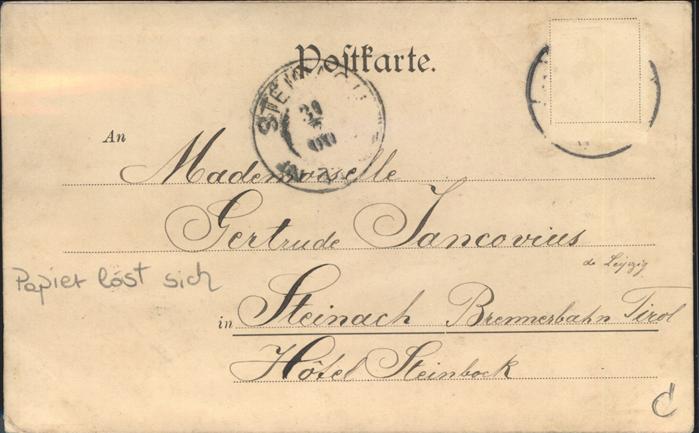 Postkarte.
STEINACH
30
7
00
An Mademoiselle
Gertrude Jancovius
de Leipzig
Papier löst sich
in Steinach Brennerbahn Tirol
Hôtel Steinbock